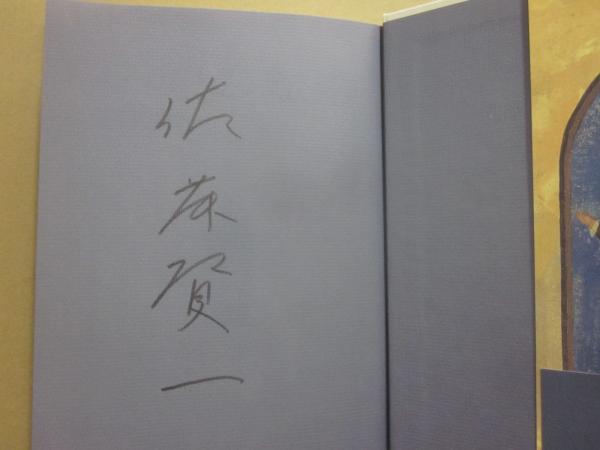 佐藤賢一